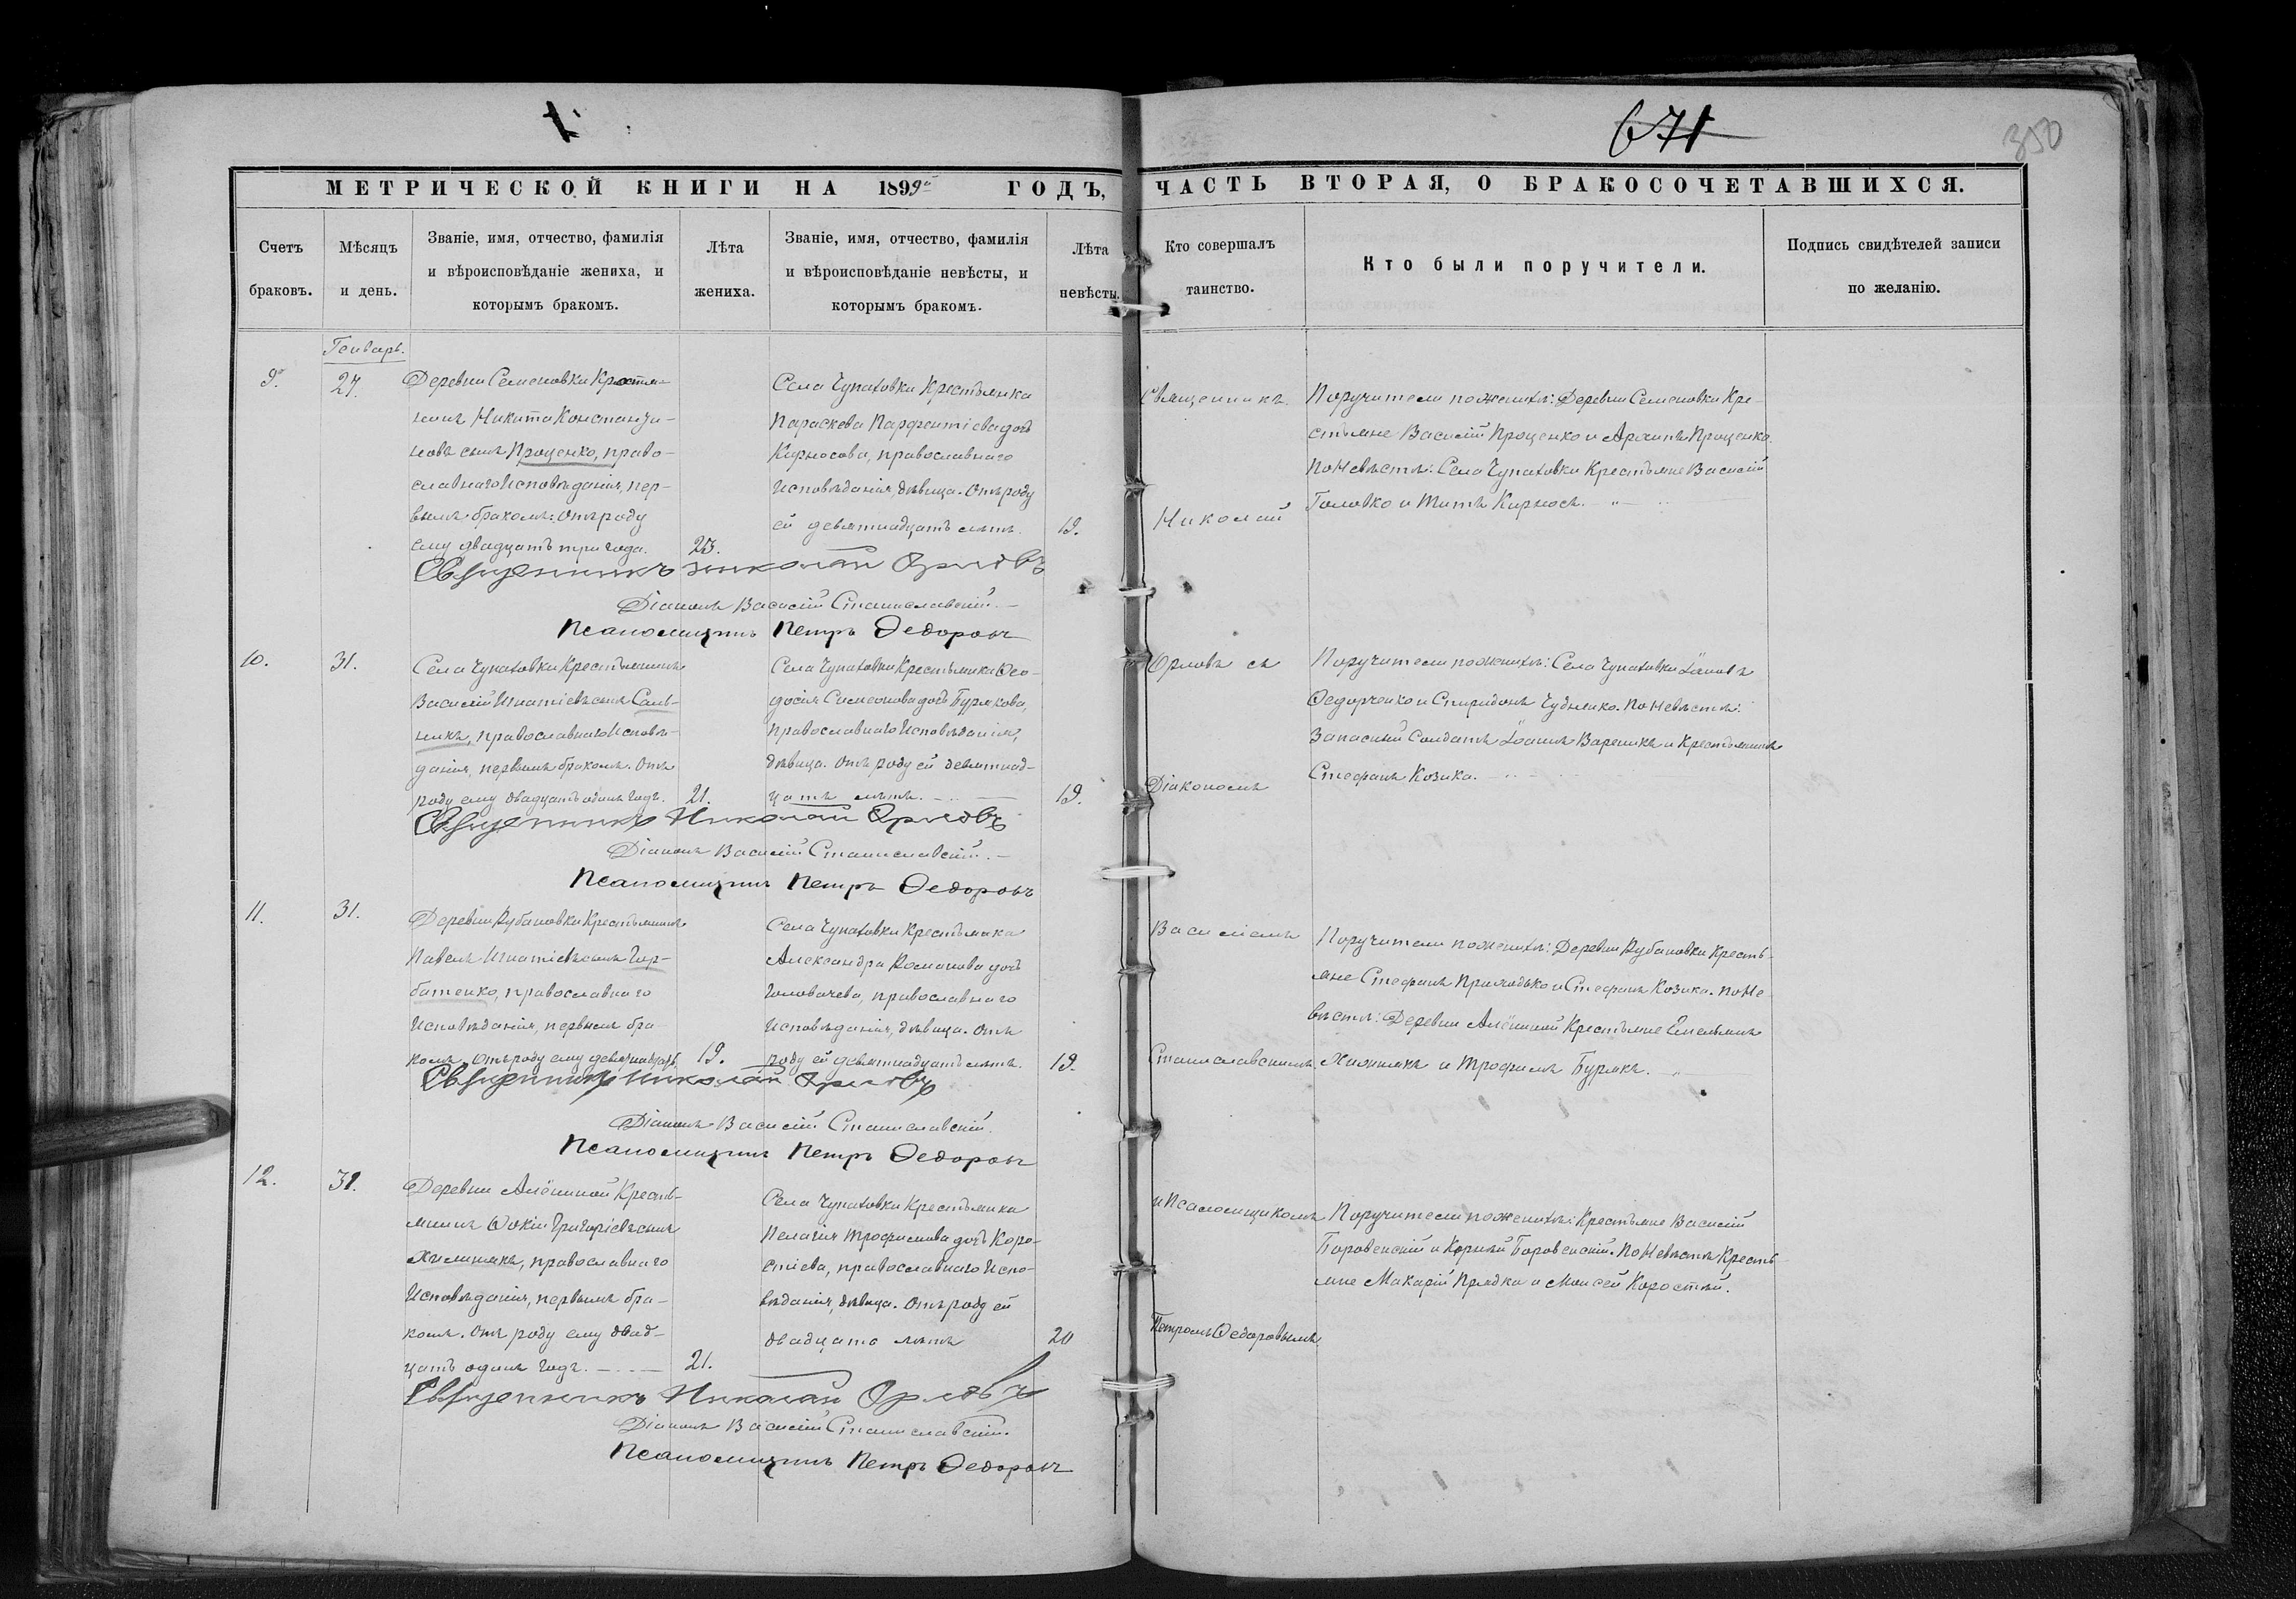 671
350
МЕТРИЧЕСКОЙ КНИГИ НА 1899й ГОДЪ, ЧАСТЬ ВТОРАЯ, О БРАКОСОЧЕТАВШИХСЯ.
Счетъ
браковъ.
Мѣсяцъ
и день.
Званіе, имя, отчество, фамилія
и вѣроисповѣданіе жениха, и
которымъ бракомъ.
Лѣта
жениха.
Званіе, имя, отчество, фамилія
и вѣроисповѣданіе невѣсты, и
которымъ бракомъ.
Лѣта
невѣсты.
Кто совершалъ
таинство.
Кто были поручители.
Подпись свидѣтелей записи
по желанію.
Генварь.
9.
27.
Деревни Семеновки Крестья-
нинъ Никита Константи-
новъ сынъ Проценко, право-
славнаго Исповѣданія, пер-
вымъ бракомъ. Отъ роду
ему двадцать три года.
23.
Села Чупаховки Крестьянка
Параскева Парфентіева дочь
Кирносова, православнаго
Исповѣданія, дѣвица. Отъ роду
ей девятнадцать лѣтъ.
19.
Священникъ
Николай
Поручители по женихѣ: Деревни Семеновки Кре-
стьяне Василій Проценко и Архипъ Проценко.
По Невѣстѣ: Села Чупаховки Крестьяне Василій
Головко и Титъ Кирносъ.
Священникъ Николай Орловъ
Діаконъ Василій Станиславскій.
Псаломщикъ Петръ Ѳедоровъ
10.
31.
Села Чупаховки Крестьянинъ
Василій Игнатіевъ сынъ Саль-
никъ, православнаго Исповѣ-
данія, первымъ бракомъ. Отъ
роду ему двадцать одинъ годъ.
21.
Села Чупаховки Крестьянка Ѳео-
досія Симеонова дочь Бурякова,
православнаго Исповѣданія,
дѣвица. Отъ роду ей девятнад-
цать лѣтъ.
19.
Орловъ съ
Діакономъ
Поручители по женихѣ: Села Чупаховки Іаковъ
Ѳедорченко и Спиридонъ Чудненко. По Невѣстѣ:
Запасный Солдатъ Іоаннъ Вареникъ и Крестьянинъ
Стефанъ Козика.
Священникъ Николай Орловъ
Діаконъ Василій Станиславскій.
Псаломщикъ Петръ Ѳедоровъ
11.
31.
Деревни Рубановки Крестьянинъ
Павелъ Игнатіевъ сынъ Гор-
батенко, православнаго
Исповѣданія, первымъ бра-
комъ. Отъ роду ему девятнадцать
19.
Села Чупаховки Крестьянка
Александра Романова дочь
Головачева, православнаго
Исповѣданія, дѣвица. Отъ
роду ей девятнадцать лѣтъ.
19.
Василіемъ
Станиславскимъ
Поручители по женихѣ: Деревни Рубановки Кресть-
яне Стефанъ Приходько и Стефанъ Козика. По Не-
вѣстѣ: Деревни Алёшиной Крестьяне Емельянъ
Хилинякъ и Трофимъ Бурякъ.
Священникъ Николай Орловъ
Діаконъ Василій Станиславскій.
Псаломщикъ Петръ Ѳедоровъ
12.
31.
Деревни Алёшиной Кресть-
янинъ Ѳокій Григоріевъ сынъ
Хилинякъ, православнаго
Исповѣданія, первымъ бра-
комъ. Отъ роду ему двад-
цать одинъ годъ.
21.
Села Чупаховки Крестьянка
Пелагія Трофимова дочь Коро-
стіева, православнаго Испо-
вѣданія, дѣвица. Отъ роду ей
двадцать лѣтъ
20
и Псаломщикомъ
Петромъ Ѳедоровымъ
Поручители по женихѣ: Крестьяне Василій
Боровенскій и Корній Боровенскій. По Невѣстѣ: Кресть-
яне Макарій Прядка и Моисей Коростій.
Священникъ Николай Орловъ
Діаконъ Василій Станиславскій.
Псаломщикъ Петръ Ѳедоровъ